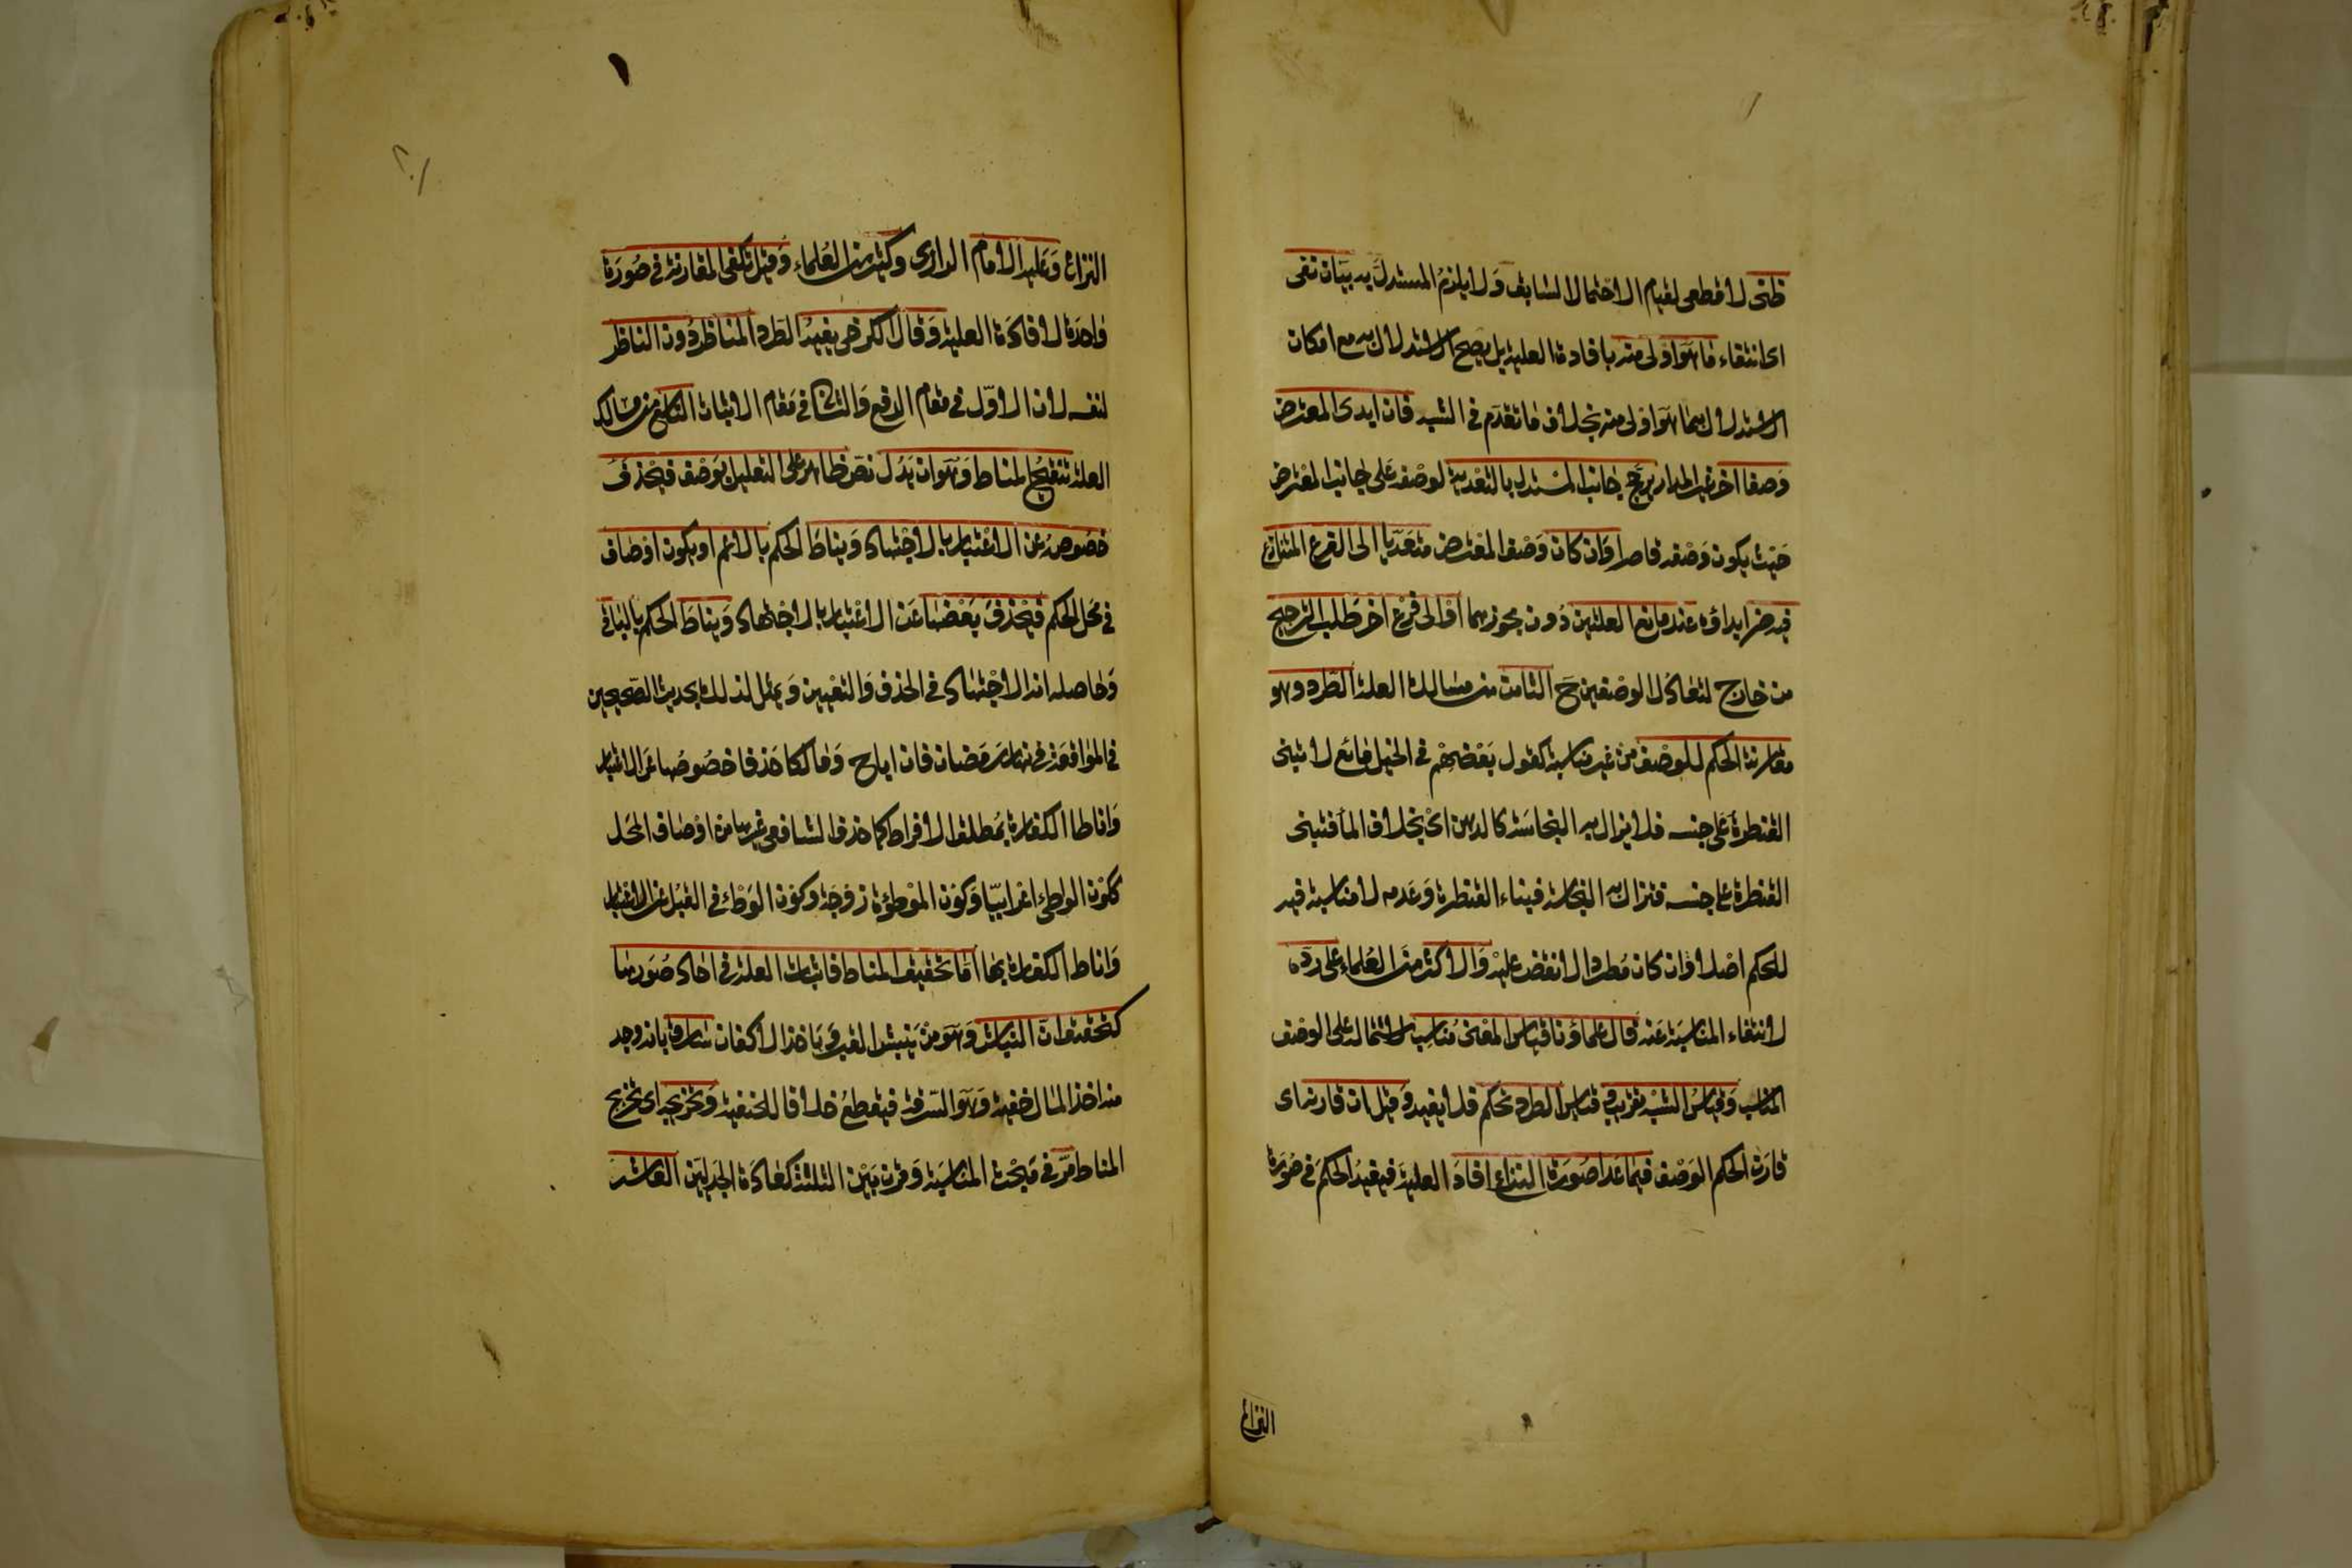 ظنى لا قطعى لقيام الاحتمال السابق وَلا يلزمُ المستدلَّ به بيَان نفى
اى انتفاء مَا هَوَ اَولى منه بافادة العلية بل يصح الاستدلال به مع امكان
الاستدلال بما هَوَ اوَلى منه بخلاف مَا تقدّم فى الشبه فان ابدى المعترض
وَصفا اخر غير المدار يرَجح جَانب المسْتدل بالتعْدية لوصْفه عَلى جانب المعْترض
حَيْث يكون وَصْفه قاصرا وَان كان وَصْف المعْترض متعَدّيا الى الفرع المتنازع
فيه ضر ابداؤه عند مانع العلتين دُون مجوزهما اوْ الى فرْع اخر طلب الترجيح
من خارج لتعَادَل الوصْفين حَ الثامن من مسَالك العلة الطَرد وهو
مقَارنة الحكم للوصْف منْ غير مناسبة كقول بَعْضهمْ فى الخل مَائع لا تبنى
القنطرة عَلى جنسه فلا يزال به النجاسَة كالدهن اىْ بخلاف المآ فتبنى
القنطرة على جنسه فتزال به النجاسَة فبناء القنطرة وَعَدمه لا مناسبة فيه
للحكم اصْلا وَان كان مُطردا لا نقض عَليْه وَالاكثر منَ العُلماء عَلى ردّه
لانتفاء المناسَبة عَنه قال علماؤنا قيَاس المعْنى مُناسِب لاشتماله على الوصْف
المناسب وَقيَاسُ الشبْه تقريب وَ قيَاس الطرد تحكم فلا يفيد وَ قيل ان قارنه اى
قارَن الحكم الوَصْف فيمَا عَدا صُورَة النزاع افادَ العلية فيفيدُ الحكمَ فى صُورَة
النزاع
٢٠١
النزاع وَعَليه الامَام الرازى وَكثير من العُلماء وَقيل تكفى المقارَنة فى صُورَة
وَاحدَة لافادَة العلية وَقال الكرخى يفيدُ الطَرد المناظرَ دُون الناظر
لنفسه لان الاوّل فى مقام الدفع وَالثانى فى مَقام الاثبات التاسع من مسَالك
العلة تنقيحُ المناط وَهوَ ان يَدُل نصّ ظاهر على التعليل بوَصْف فيُحْذف
خصُوصُهُ عن الاعْتبَار بالاجْتهاد وَيناطَ الحكم بالاعم او يكون اوْصَاف
فى مَحل الحكم فيُحْذفَ بَعْضهَا عَن الاعْتبار بالاجْتهاد وَيناطَ الحكم بالبَاقى
وَحَاصله انه الاجْتهاد فى الحذف وَالتعْيين وَيمثل لذلك بحديث الصّحيحين
فى الموَاقعَة فى نهار رَمَضان فان ابا ح وَمَالكا حَذفا خصُوصُهَا عَن الاعْتبَار
وَاناطا الكفارة بمُطلق الافطار كمَا حَذف الشافعى غيرهَا منْ اوْصَاف المحَل
ككوْن الوَاطئ اعْرابيّا وَكوْن الموْطوءَة زوْجَة وَكوْن الوَطْئ فى القبُل عَن الاعْتبَار
وَاناط الكفارَة بهَا اَمَّا تحْقيقُ المناط فاثبَات العلة فى احَاد صُوَرهَا
كتحْقيق انّ النباش وَهوَ منْ يَنبشُ القبوْر وَيَأخذ الاكفان سَارق بانه وُجدَ
منه اخذ المال خفيَة وَهوَ السَّرقة فيُقطعُ خلافا للحنفية وَتخريجه اى تخريج
المناط مَرّ فى مَبْحث المناسَبة وَقرن بَيْن الثلثة كعَادَة الجَدليّين العاشر